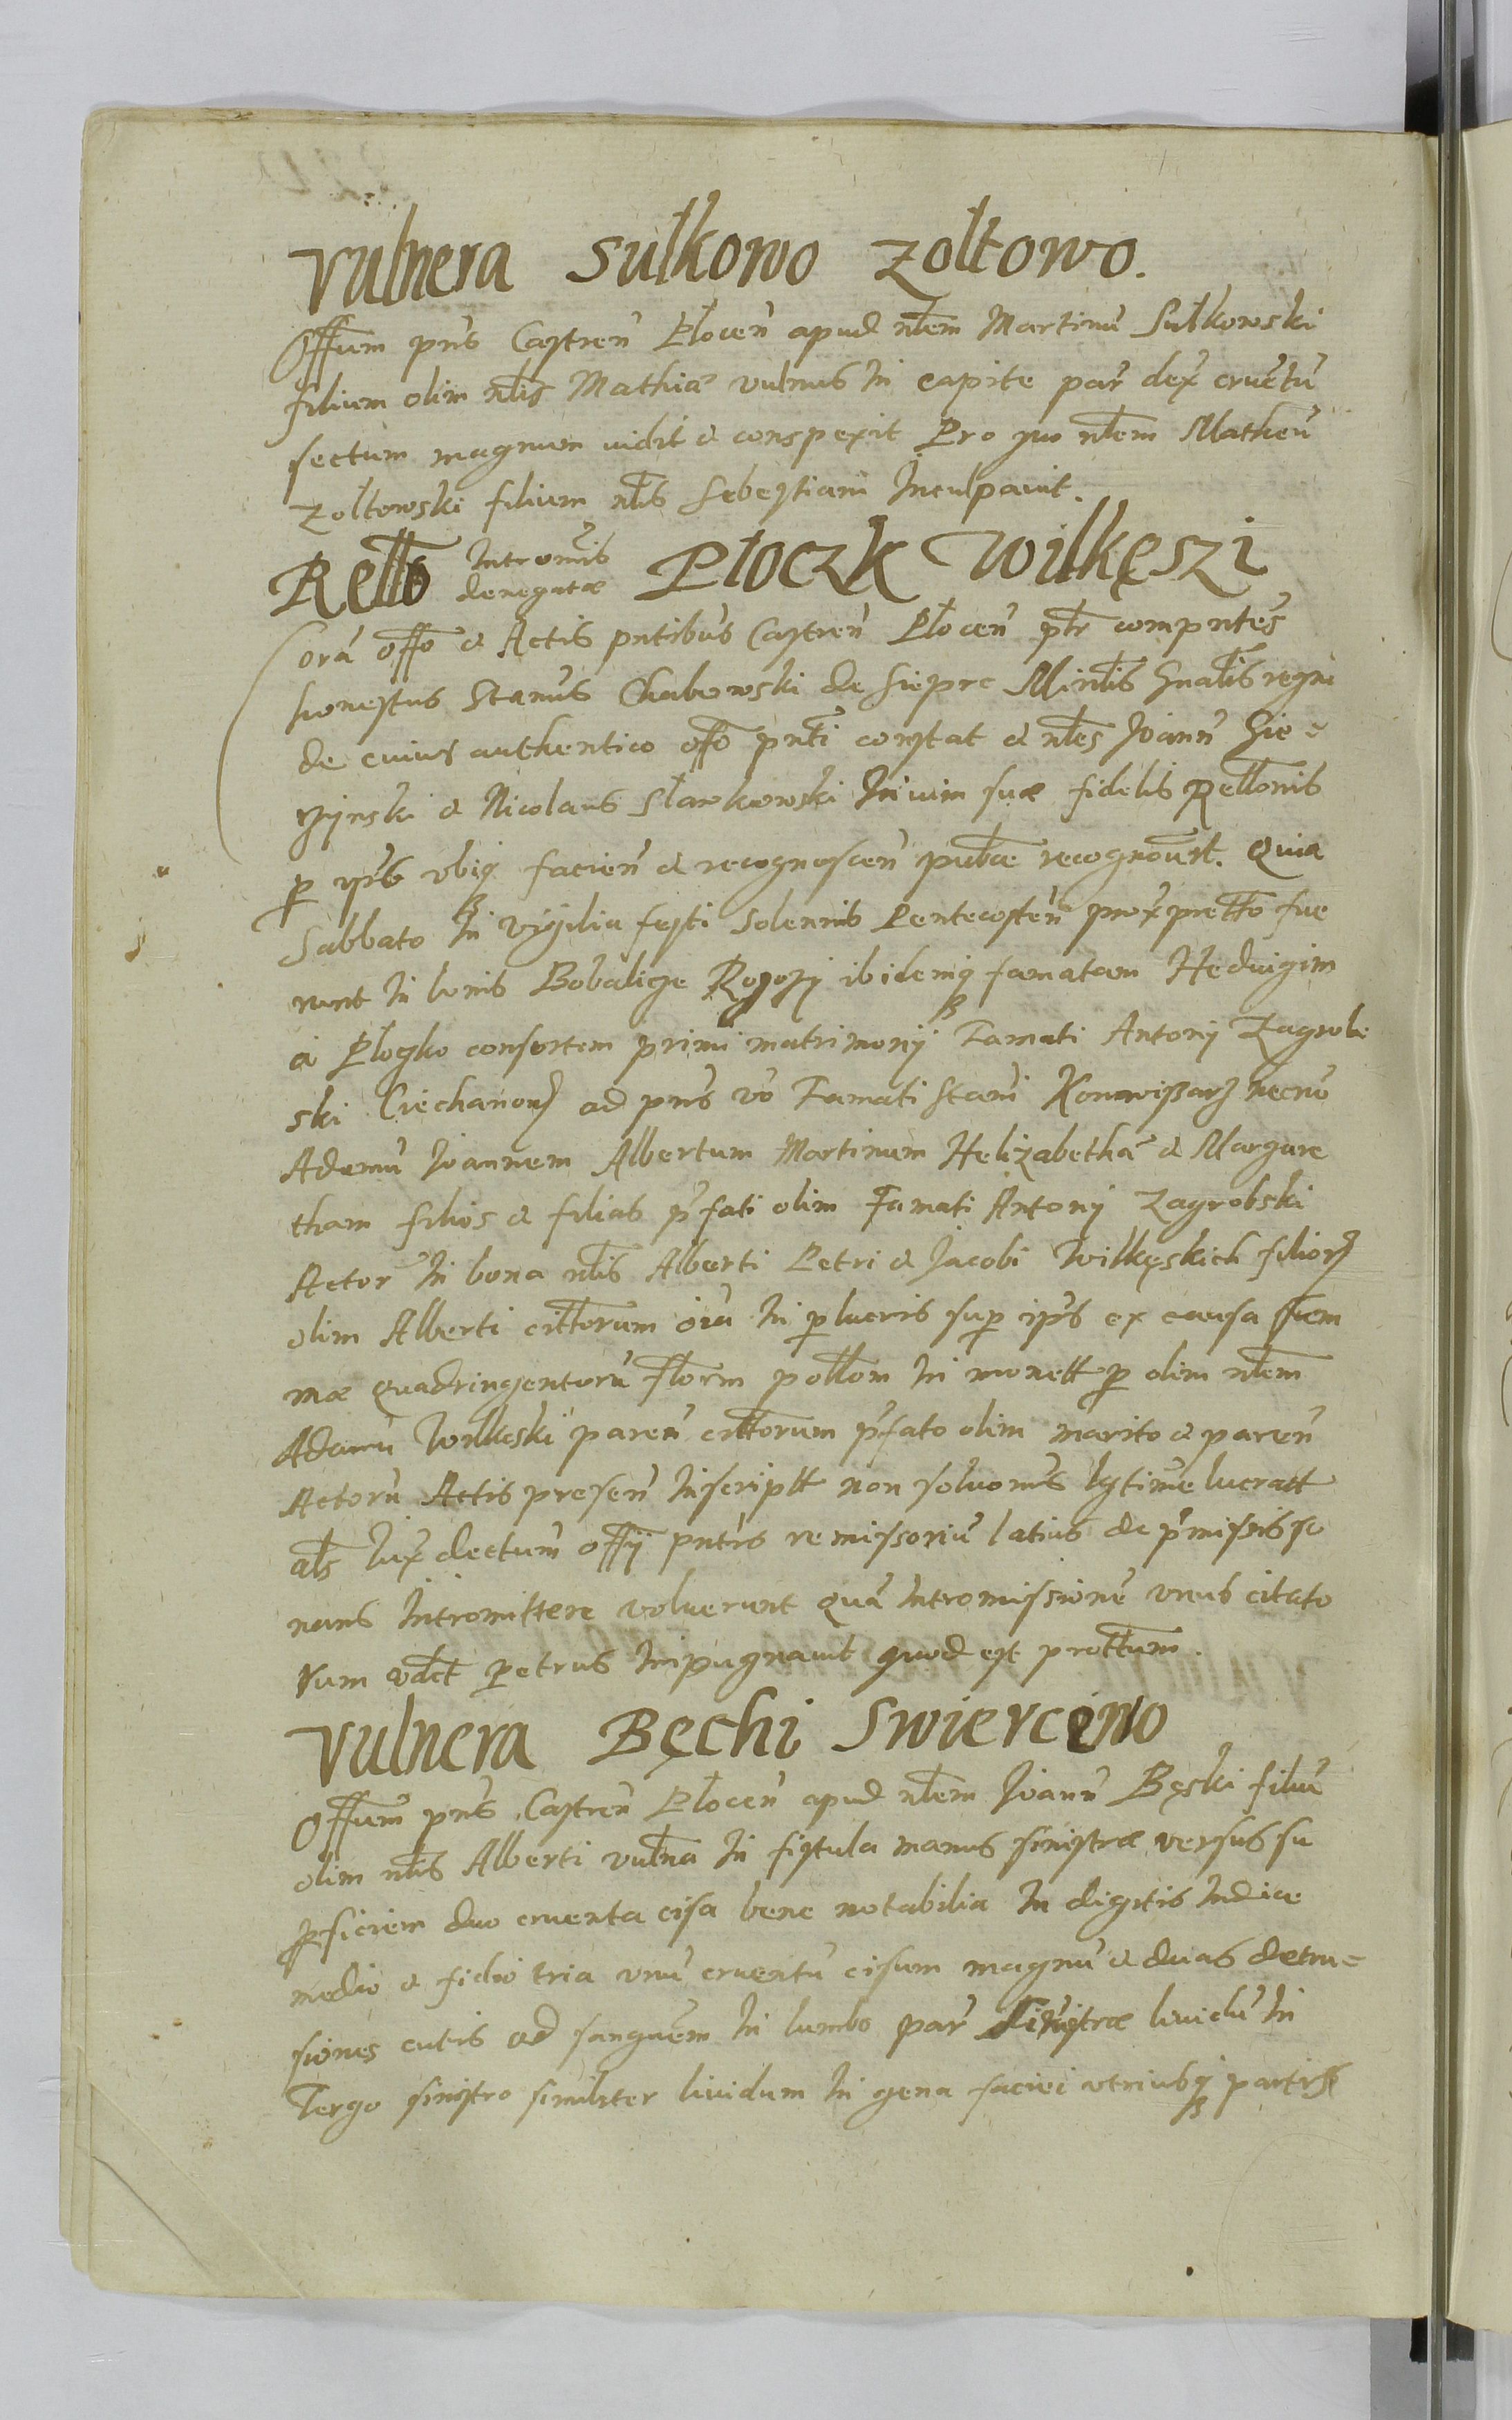 Vulnera Sułkowo Zołtowo.
Offum pns Castren Płocen apud nlem Martinu Sułkowski
filium olim nlis Mathiæ vulnus in capite par dex cruetu
sectum magnum vidit & conspexit Pro quo nlem Matheu
Zołtowski filium nlis Sebestiani Inculpavit.
Rello Intromis denegatæ Płoczk Wilkęszi
Cora offo & Actis pntibus Castren Płocen ptr compntes
honestus Stanus Chabowski de Siepre Minlis Gnalis regni
de cuius authentico offo pnti constat & nles Joann Sie=
& Nicolaus Sławkowski In vim suæ fidelis Rellonis
p ipsos ubiq facien & recognoscen publice recognovert. Quia
Sabbato In vigilia festi Solennis Pentecosten prox pretto fue
runt In bonis Bobalicze Rogozy ibidemq famatam Hedvigim
a Plogko consortem primi matrimonij Famati Antonij Zagrobe
ski Ciechanow ad pns vo Famati Stani necno
Adamu Joannem Albertum Martinum Helizabetha & Margare
tham filios & filias pfati olim Famati Antonij Zagrobski
Actor In bona nlis Alberti Petri & Jacobi Wilkęskich filior
olim Alberti cittorum oia In p lucris sup ipis ex causa sum
mæ quadringentoru florm pollon In monett p olim nlem
Adamu Wilkeski paren cittorum pfato olim marito & paren
Actoru Actis presen Inscriptt non solvonis lgtime lucratt
als Jux dectum offij pntis remissoriu latius de pmissis so
nans Intromittere voluerunt qua Intromissione unus citato
rum vdlt Petrus Inpugnavit quod est prottum.
Vulnera Bęchi Swiercino
Offum pns Castren Płocen apud nlem Joann Bęski filiu
olim nlis Alberti vulna In fistula manus sinistræ versus su
pficiem duo cruenta cisa bene notabilia In digitis Indice
medio & fidio tria unu cruentu cisum magnu & duas detru=
siones cutis ad sanguem In lumbo par sinistræ lividu In
Tergo sinistro similiter lividum In gena faciei utriusq partis